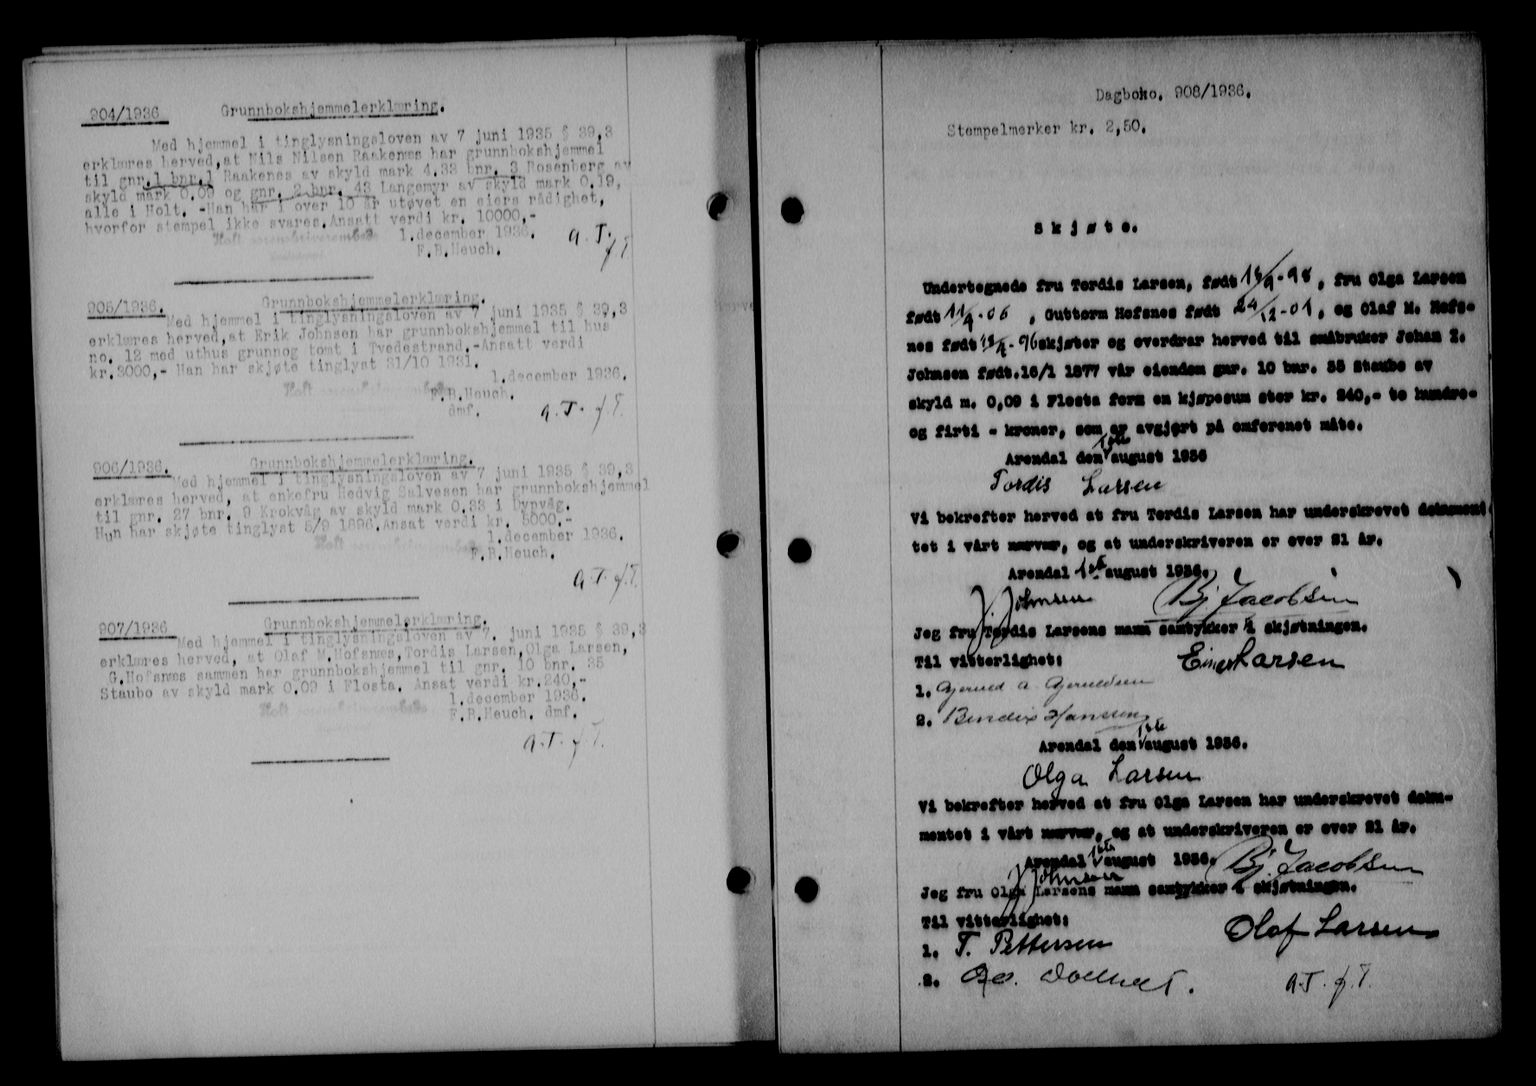 904/1936 Grunnbokshjemmelerklæring.
Med hjemmel i tinglysningsloven av 7 juni 1935 § 39,3
erklæres herved,at Nils Nilsen Raakenæs har grunnbokshjemmel
til gnr.1 bnr.1 Raakenes av skyld mark 4.33 bnr. 3 Rosenberg av
skyld mark 0.09 og gnr. 2 bnr. 43 Langemyr av skyld mark 0.19,
alle i Holt. -Han har i over 10 år utøvet en eiers rådighet,
hvorfor stempel ikke svares.Ansatt verdi kr. 10000,-
1.december 1936.
F.B.Heuch.
905/1936. Grunnbokshjemmelerklæring.
Med hjemmel i tinglysningsloven av 7 juni 1935 § 39,3
erklæres herved,at Erik Johnsen har grunnbokshjemmel til hus
no. 12 med uthus grunnog tomt i Tvedestrand.-Ansatt verdi
kr.3000,- Han har skjøte tinglyst 31/10 1931.
1.december 1936.
F.B.Heuch.
dmf.
906/1936. Grunnbokshjemmelerklæring.
Med hjemmel i tinglysningsloven av 7 juni 1935 § 39,3
erklæres herved, at enkefru Hedvig Salvesen har grunnbokshjemmel
til gnr. 27 bnr. 9 Krokvåg av skyld mark 0.33 i Dypvåg.
Hun har skjøte tinglyst 5/9 1896.Ansat verdi kr. 5000.-
1.december 1936.
F.B.Heuch.
907/1936 Grunnbokshjemmelerklæring.
Med hjemmel i tinglysningsloven av 7. juni 1935 § 39,3
erklæres herved, at Olaf M.Hofsnæs,Tordis Larsen,Olga Larsen,
G.Hofsnæs sammen har grunnbokshjemmel til gnr. 10 bnr. 35
Staubo av skyld mark 0.09 i Flosta. Ansat verdi kr.240,-
1.december 1936.
F.B.Heuch. dmf.
Dagbokno. 908/1936.
Stempelmerker kr. 2,50.
Skjøte.
Undertegnede fru Tordis Larsen, født , fru Olga Larsen
født , Guttorm Hofsnes født , og Olaf M. Hofs-
nes født skjøter og overdrar herved til småbruker Johan Z.
Johnsen født.16/1 1877 vår eiendom gnr. 10 bnr. 35 Staubo av
skyld m. 0,09 i Flosta form en kjøpesum stor kr. 240,- to hundre-
og firti - kroner, som er avgjort på omforenet måte.
Arendal den august 1936
Tordis Larsen
Vi bekrefter herved at fru Tordis Larsen har underskrevet dokument
tet i vårt nærvær, og at underskriveren er over 21 år.
Arendal august 1936.
J. Johnsen Bj Jacobsen
Jeg fru Tordis Larsens mann samtykker i skjøtningen.
Til vitterlighet: Einar Larsen
1.
2. Bendix Hanssen
Arendal den august 1936.
Olga Larsen
Vi bekrefter herved at fru Olga Larsen har underskrevet doku-
mentet i vårt nærvær, og at underskriveren er over 21 år.
Arendal august 1936. Bj. Jacobsen
J Johnsen
Jeg fru Olga Larsens mann samtykker i skjøtningen.
Til vitterlighet: Olaf Larsen
1. T. Pettersen
2.